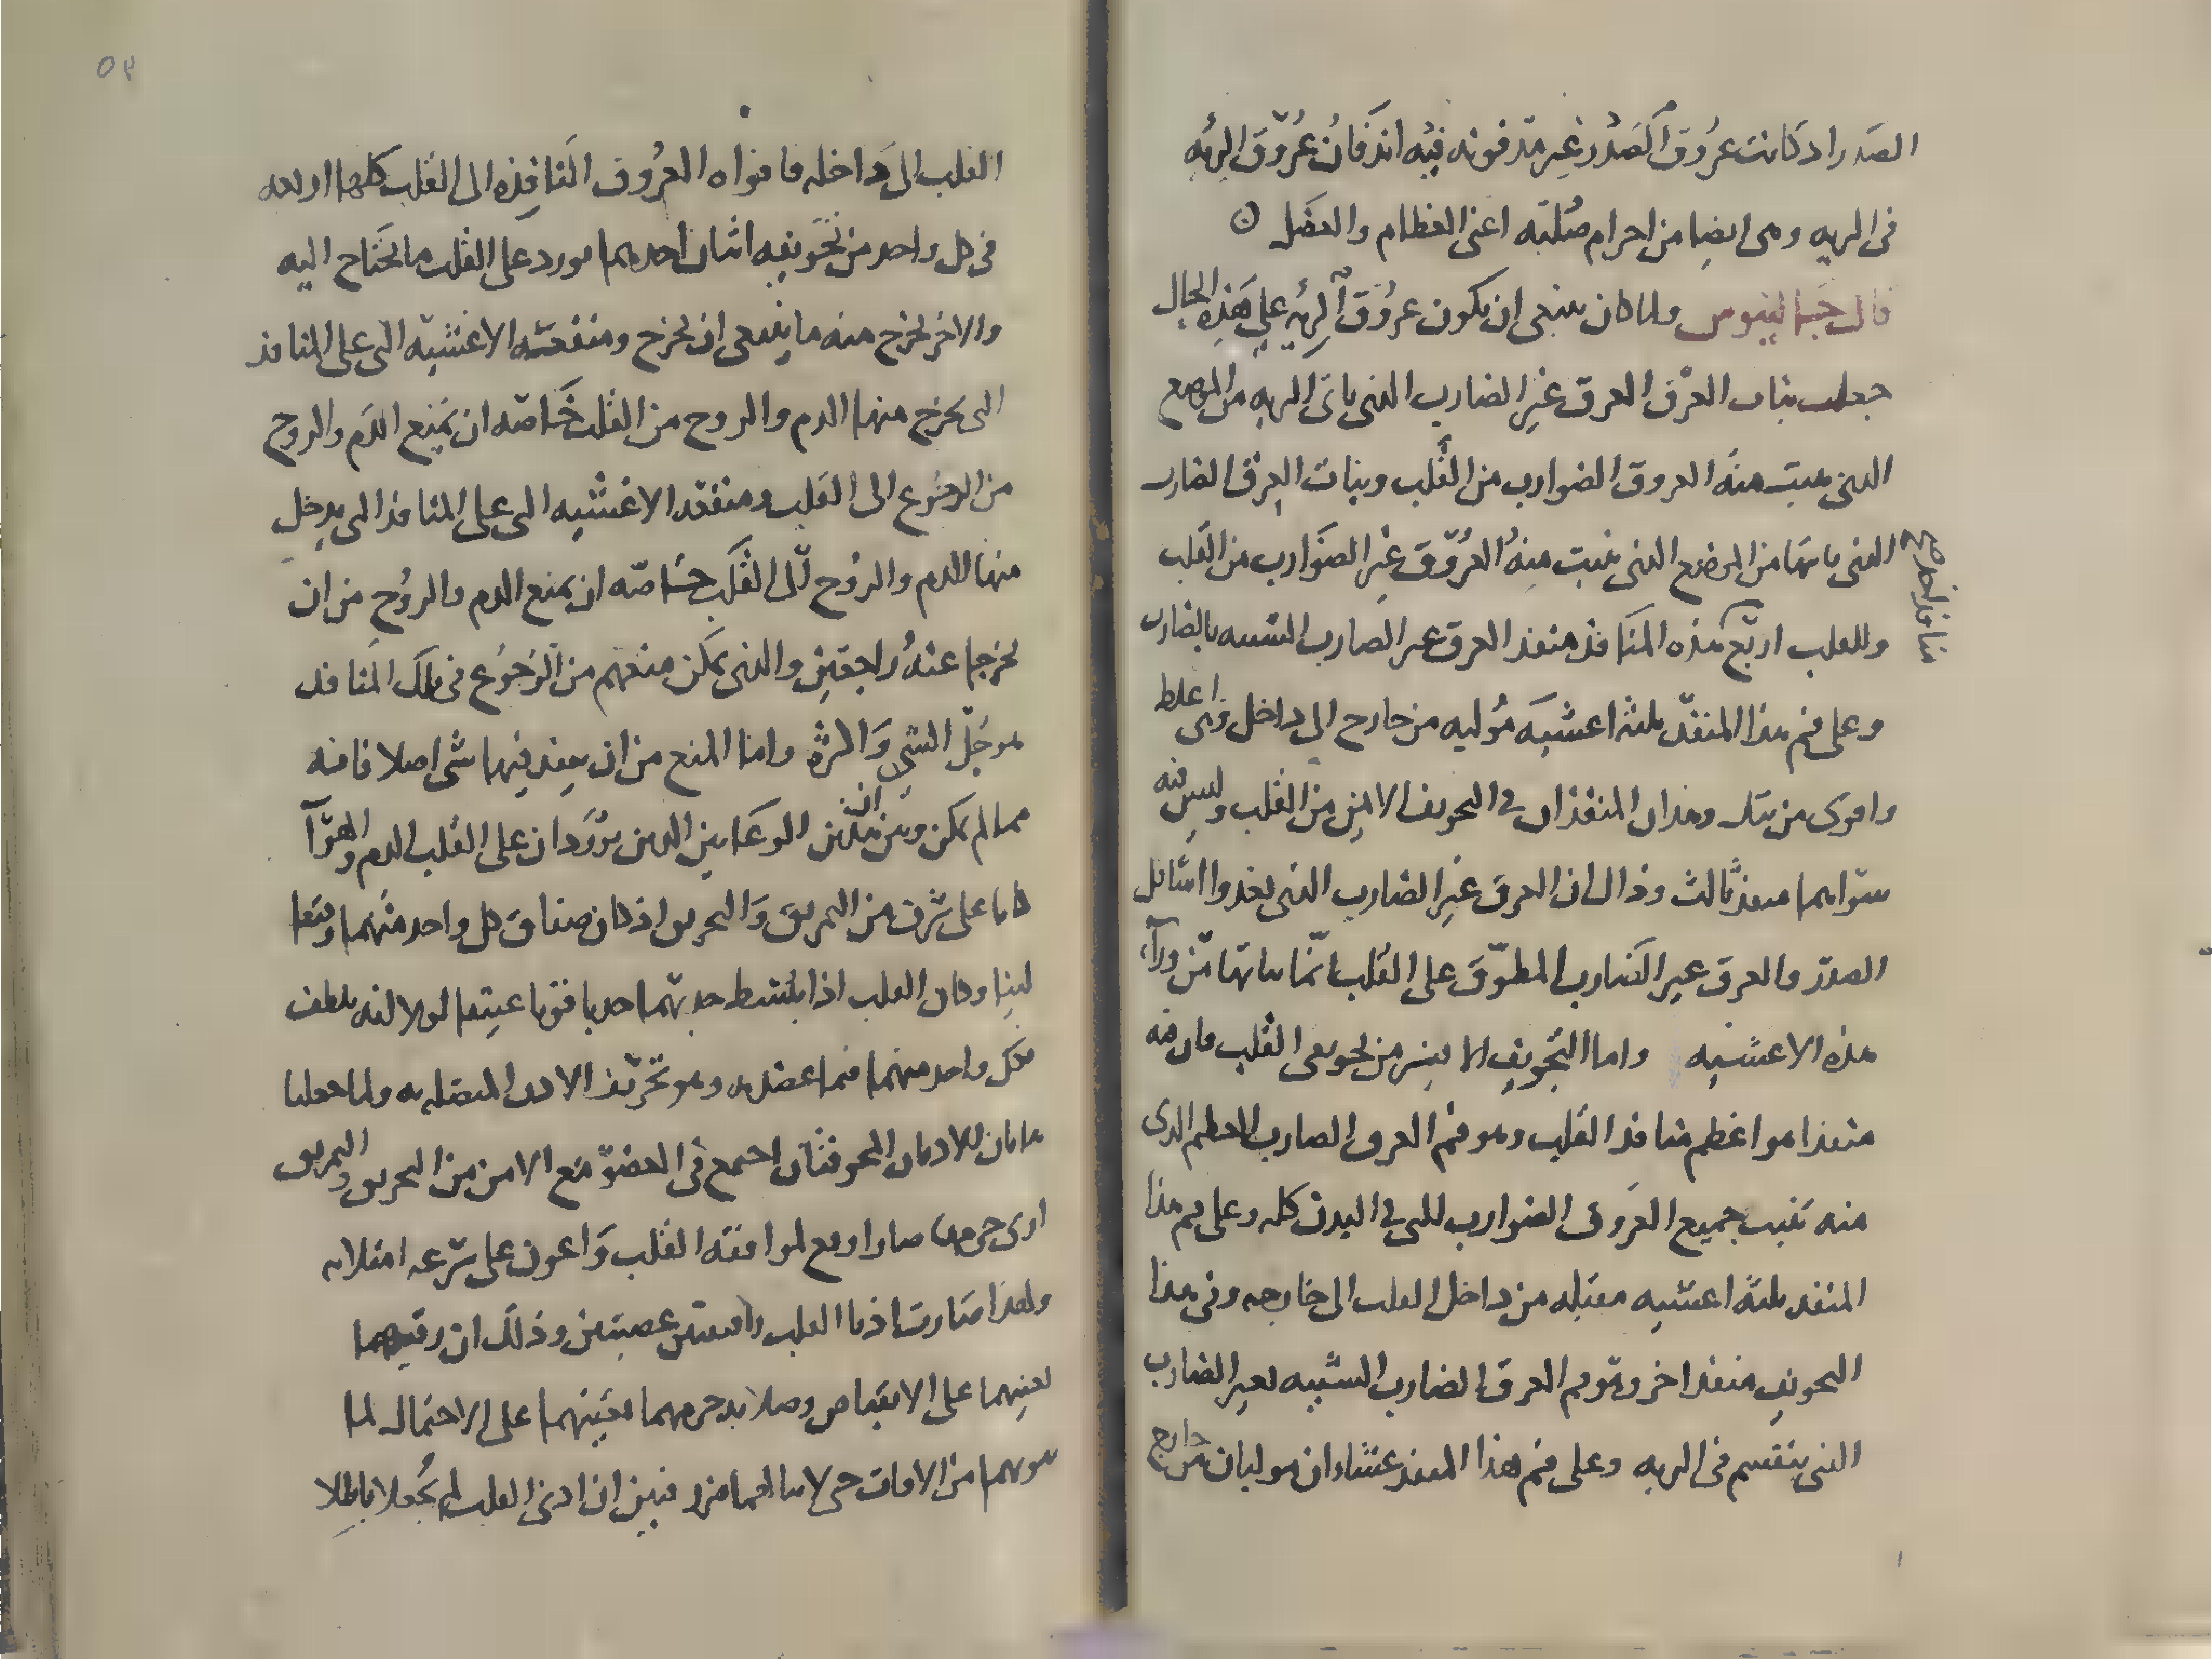 الصدر اذ كانت عروق الصدر غير مدفونه فيه اندفان عروق الريه
فى الريه وهى ايضا من اجرام صلبه اعنى العظام والعضل
قال جالينوس ولما كان ينبغى ان يكون عروق الريه على هذه الحال
جعل نبات العرق العرق غير الضارب الذى ياتى الريه من الموضع
الذى ينبت منه العروق الضوارب من القلب ونبات العرق الضارب
الذى ياتيها من الموضع الذى ينبت منه العروق غير الضوارب من القلب
وللقلب اربع هذه المنافذ منفذ العرق غير الضارب الشبيه بالضارب
منافذ القلب
وعلى فم هذا المنفذ ثلثه اغشيه موليه من خارج الى داخل وهى اغلظ
واقوى من تلك وهذان المنفذان فى التجويف الايمن من القلب وليس فيه
سواهما منفذ ثالث وذاك ان العرق غير الضارب الذى يغذوا اسافل
الصدر والعرق غير الضارب المطوق على القلب انما نباتها من ورآء
هذه الاغشيه واما التجويف الايسر من تجويفى القلب فان فيه
منفذا هو اعظم منافذ القلب وهو فم العرق الضارب الاعظم الذى
منه تنبت جميع العروق الضوارب التى فى البدن كله وعلى فم هذا
المنفذ ثلثه اغشيه مقبله من داخل القلب الى خارجه وفى هذا
التجويف منفذ اخر وهو فم العرق الضارب الشبيه بغير الضارب
الذى ينقسم فى الريه وعلى فم هذا المنفذ غشاءان موليان من خارج
القلب الى داخله فافواه العروق النافذه الى القلب كلها اربعه
فى كل واحد من تجويفيه اثنان احدهما يورد على القلب ما يحتاج اليه
والاخر يخرج منه ما ينبغى ان يخرج ومنفعه الاغشيه التى على المنافذ
التى يخرج منها الدم والروح من القلب خاصه ان يمنع الدم والروح
من الرجوع الى القلب ومنفعه الاغشيه التى على المنافذ التى يدخل
منها الدم والروح الى القلب خاصه ان يمنع الدم والروح من ان
يخرجا عنه راجعين والذى يمكن منعهم من الرجوع فى تلك المنافذ
هو جل الشى والمره واما المنع من ان ينفذ فيها شى اصلا فانه
مما لم يمكن وبين ان هذين الوعاين الذين يوردان على القلب الدم والهوآ
كانا على شرف من التمزيق والتخريق اذ كان صفاق كل واحد منهما رقيقا
لينا وكان القلب اذا انبسط جذبهما جذبا قويا عنيفا لولا انه يلطف
لكل واحد منهما فيما عضده وهو تجويف الاذن المتصله به ولما جعلتا
هاتان الاذنان المجوفتان اجتمع فى العضو مع الامن من التخريق والتمزيق
ان صار اوقع لموافقه القلب واعون على سرعه امتلائه
ولهذا صارت اذنا القلب رقيقتين عصبيتين وذلك ان رقتهما
تعينهما على الانقباض وصلابه جرمهما تعينهما على الاحتمال لما
من الافات حتى لا فبين ان اذنى القلب لم يجعلا باطلا